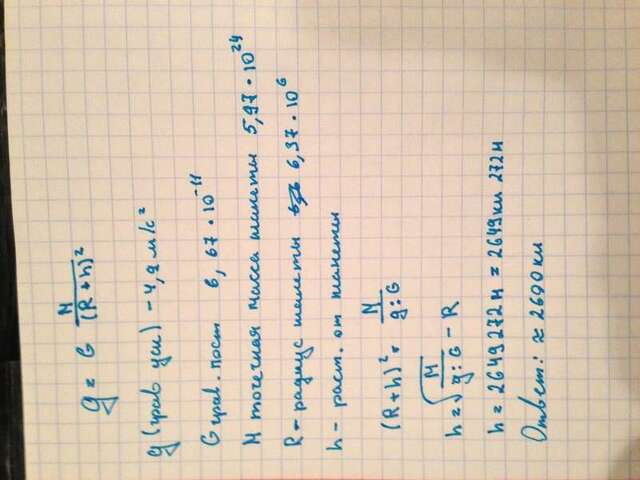 g = G M/(R+h)²
g (грав уск) - 4,9 м/с²
G грав. пост 6,67 · 10⁻¹¹
M точечная масса планеты 5,97 · 10²⁴
R - радиус планеты 6,37 · 10⁶
h - раст. от планеты
(R+h)² = M/g:G
h = √M/g:G - R
h = 2649272 м = 2649 км 272 м
Ответ: ≈ 2690 км